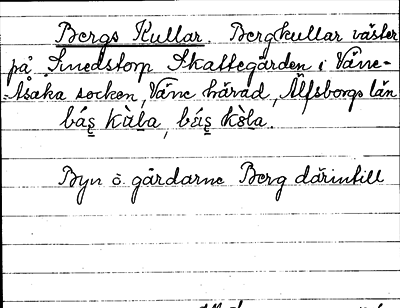 Bergs Kullar. Bergkullar väster
på Smedstorp Skattegården i Väne-
-Åsaka socken, Väne härad, Älfsborgs län
Byn o. gårdarne Berg därintill